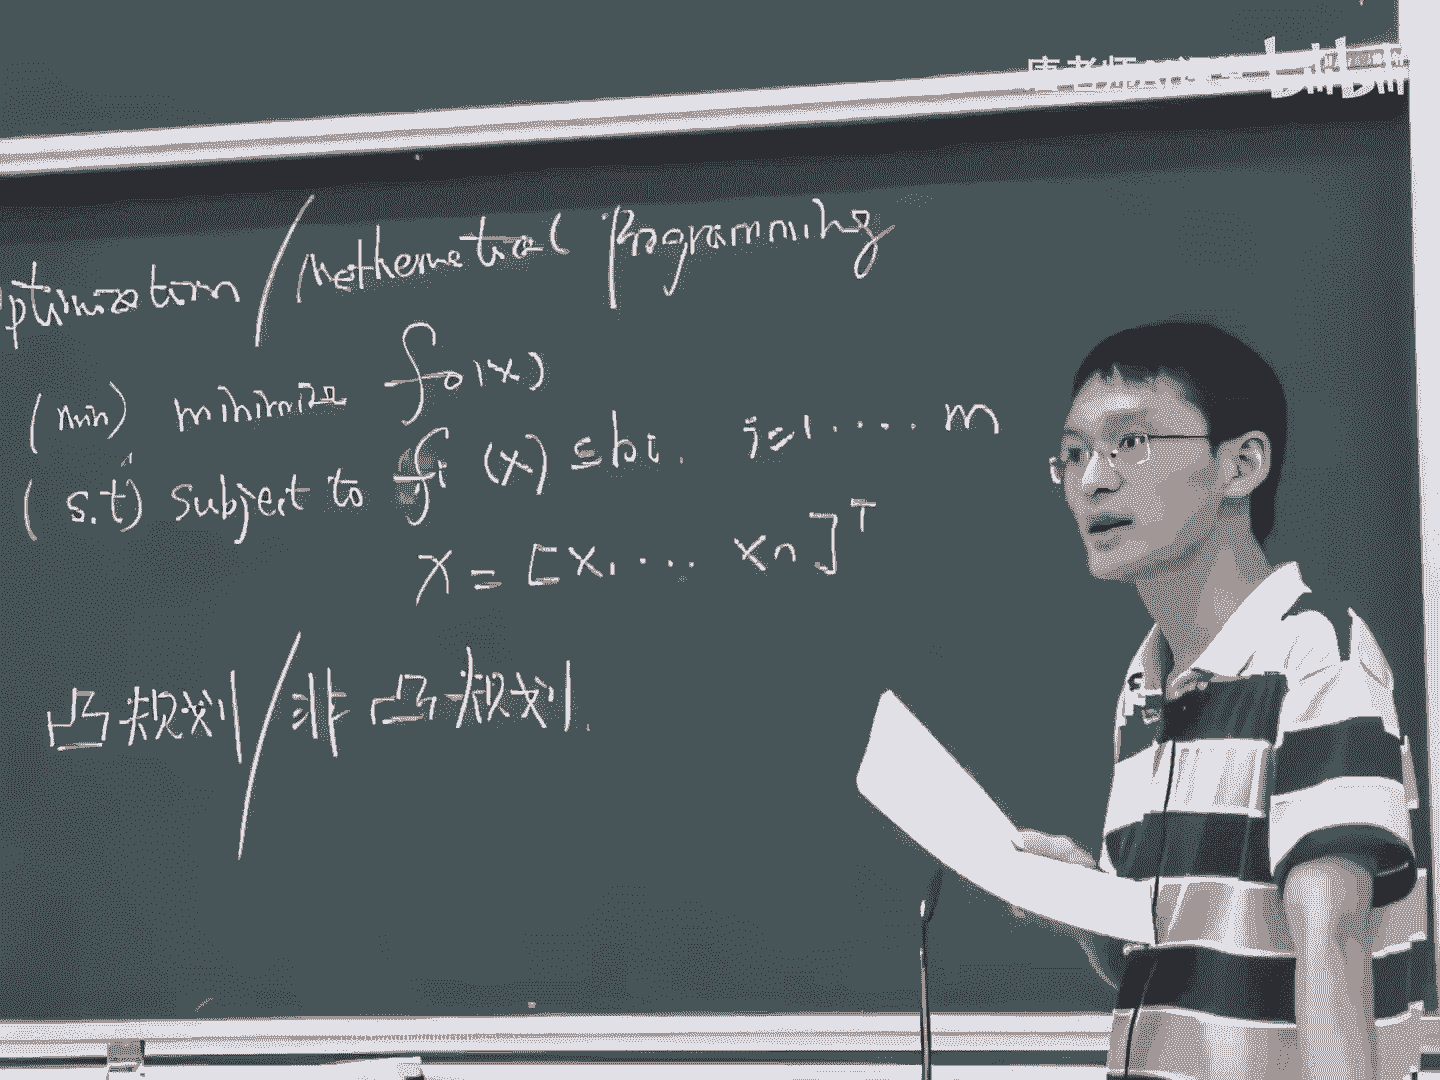 bilibili
Optimization / Mathematical Programming
(min) minimize f₀(x)
(s.t) subject to fi (x) ≤ bi. i=1.... m
x = [x1.... xn]ᵀ
凸规划 / 非凸规划.